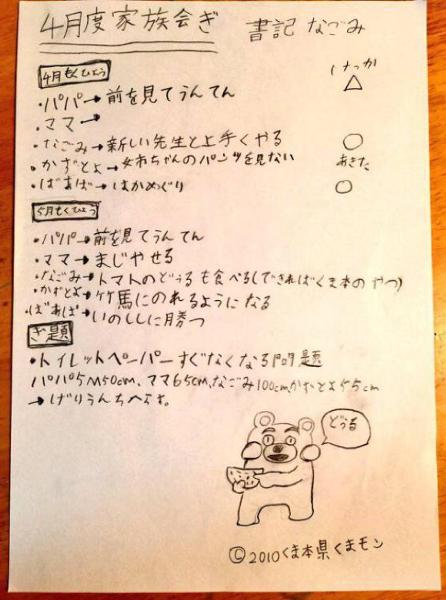 4月度家族会ぎ 書記 なごみ
4月もくひょう けっか
・パパ→前を見てうんてん △
・ママ→
・なごみ→新しい先生と上手くやる ○
・かずとよ→姉ちゃんのパンツを見ない あきた
・ばあば→はかめぐり ○
5月もくひょう
・パパ→前を見てうんてん
・ママ→まじやせる
・なごみ→トマトのどぅるも食べる(できればくま本のやつ)
・かずとよ→竹馬にのれるようになる
・ばあば→いのししに勝つ
ぎ題
・トイレットペーパーすぐなくなる問題
パパ5M50cm、ママ65cm、なごみ100cm、かずとよ45cm
→げりうんちへらす。
どぅる
©2010くま本県くまモン